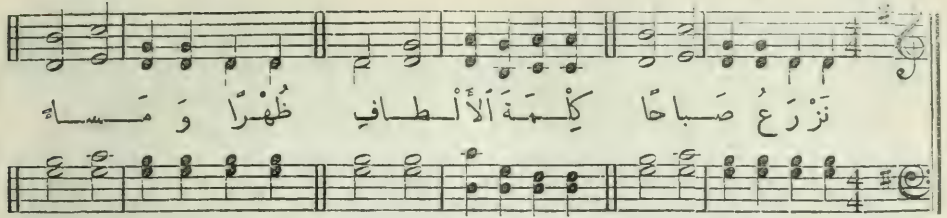 نَزْرَعُ صَباحًا كِلْمَةَ ٱلأَلْطافِ ظُهْرًا وَ مَساءً
4 4
4 4